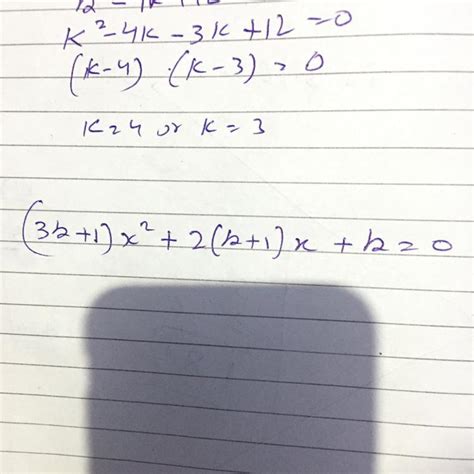 k² - 4k - 3k + 12 = 0
(k-4) · (k-3) = 0
k = 4 or k = 3
(3k+1)x² + 2(k+1)x + k = 0